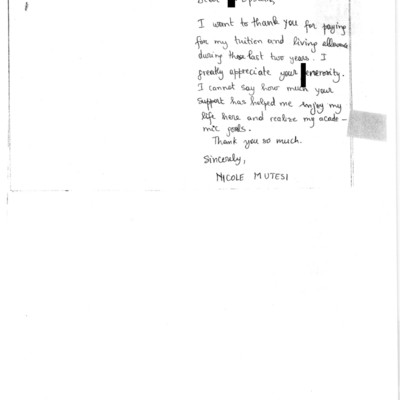 Dear
I want to thank you for paying
for my tuition and living allowance
during these last two years. I
greatly appreciate your enerosity.
I cannot say how much your
support has helped me enjoy my
life here and realize my acade-
mic goals.
Thank you so much.
Sincerely,
NICOLE MUTESI